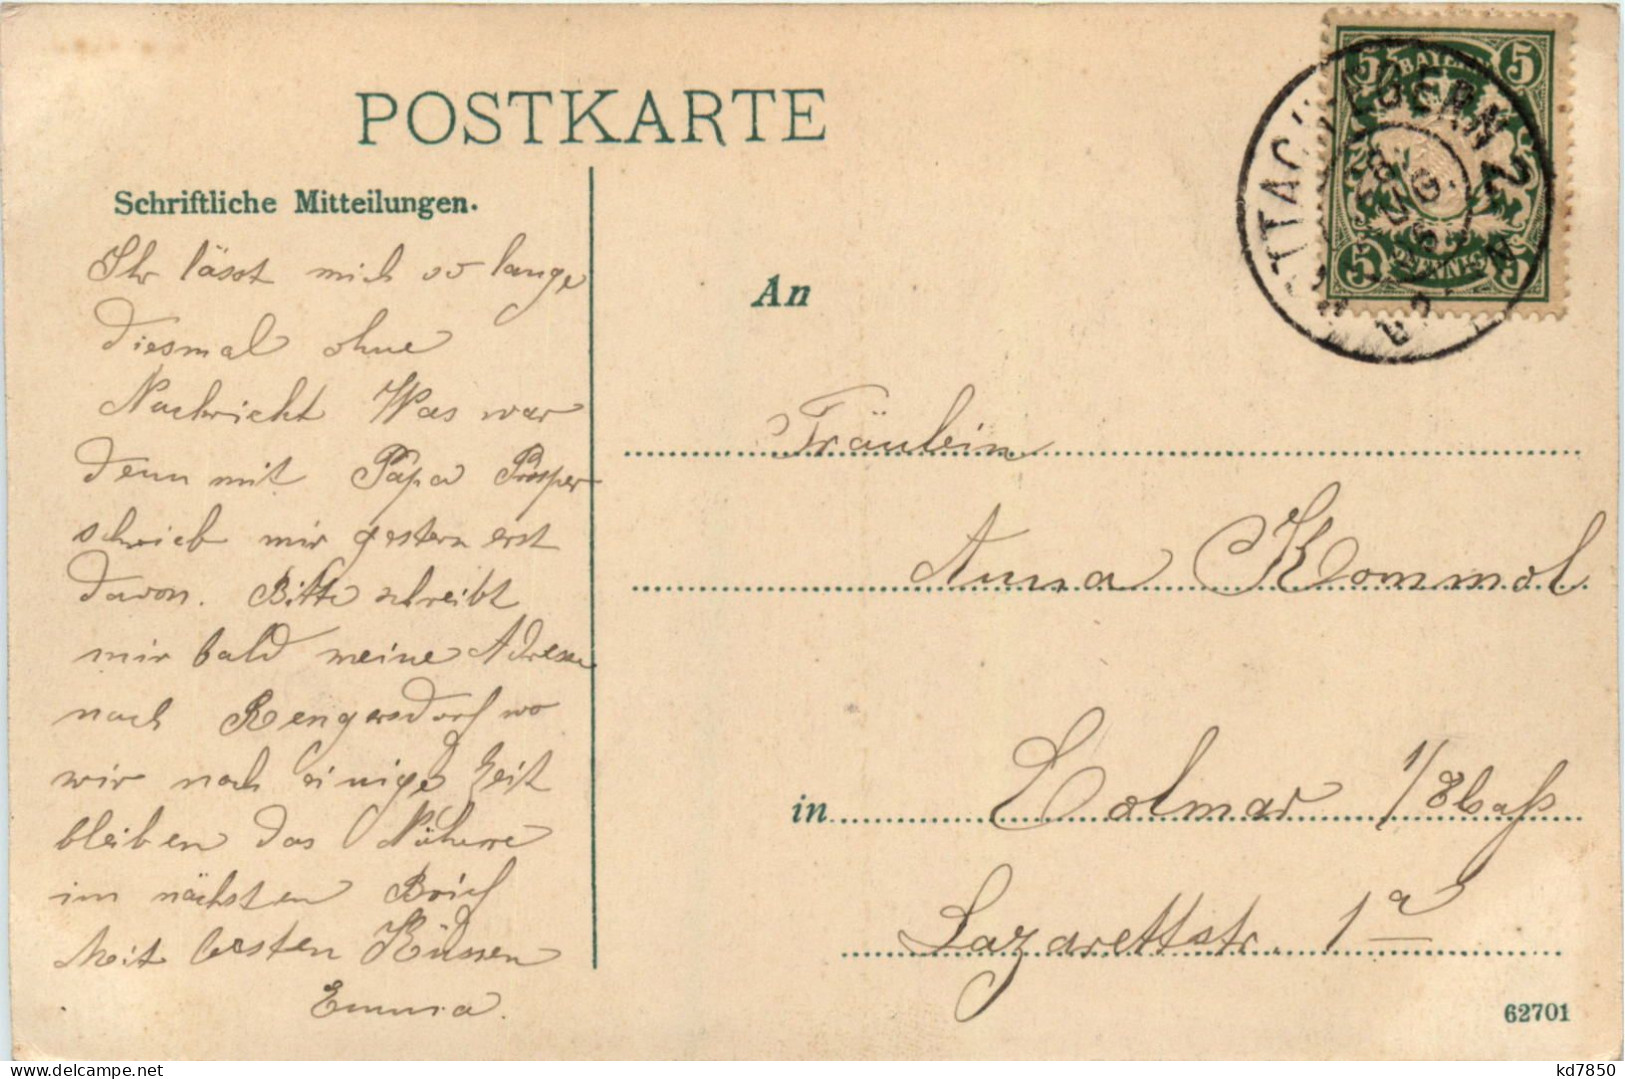 POSTKARTE
Schriftliche Mitteilungen.
Ihr lässt mich so lange
diesmal ohne
Nachricht Was war
denn mit Papa Prosper
schrieb mir gestern erst
davon. Bitte schreibt
mir bald meine Adresse
nach Rengersdorf wo
wir noch einige Zeit
bleiben das Nähere
im nächsten Brief
Mit besten Küssen
Emma.
BAYERN
5 5
5 PFENNIG 5
An
Fräulein
Anna Kommol
in Colmar i/Elsaß
Lazarettstr. 1a
62701
kd7850